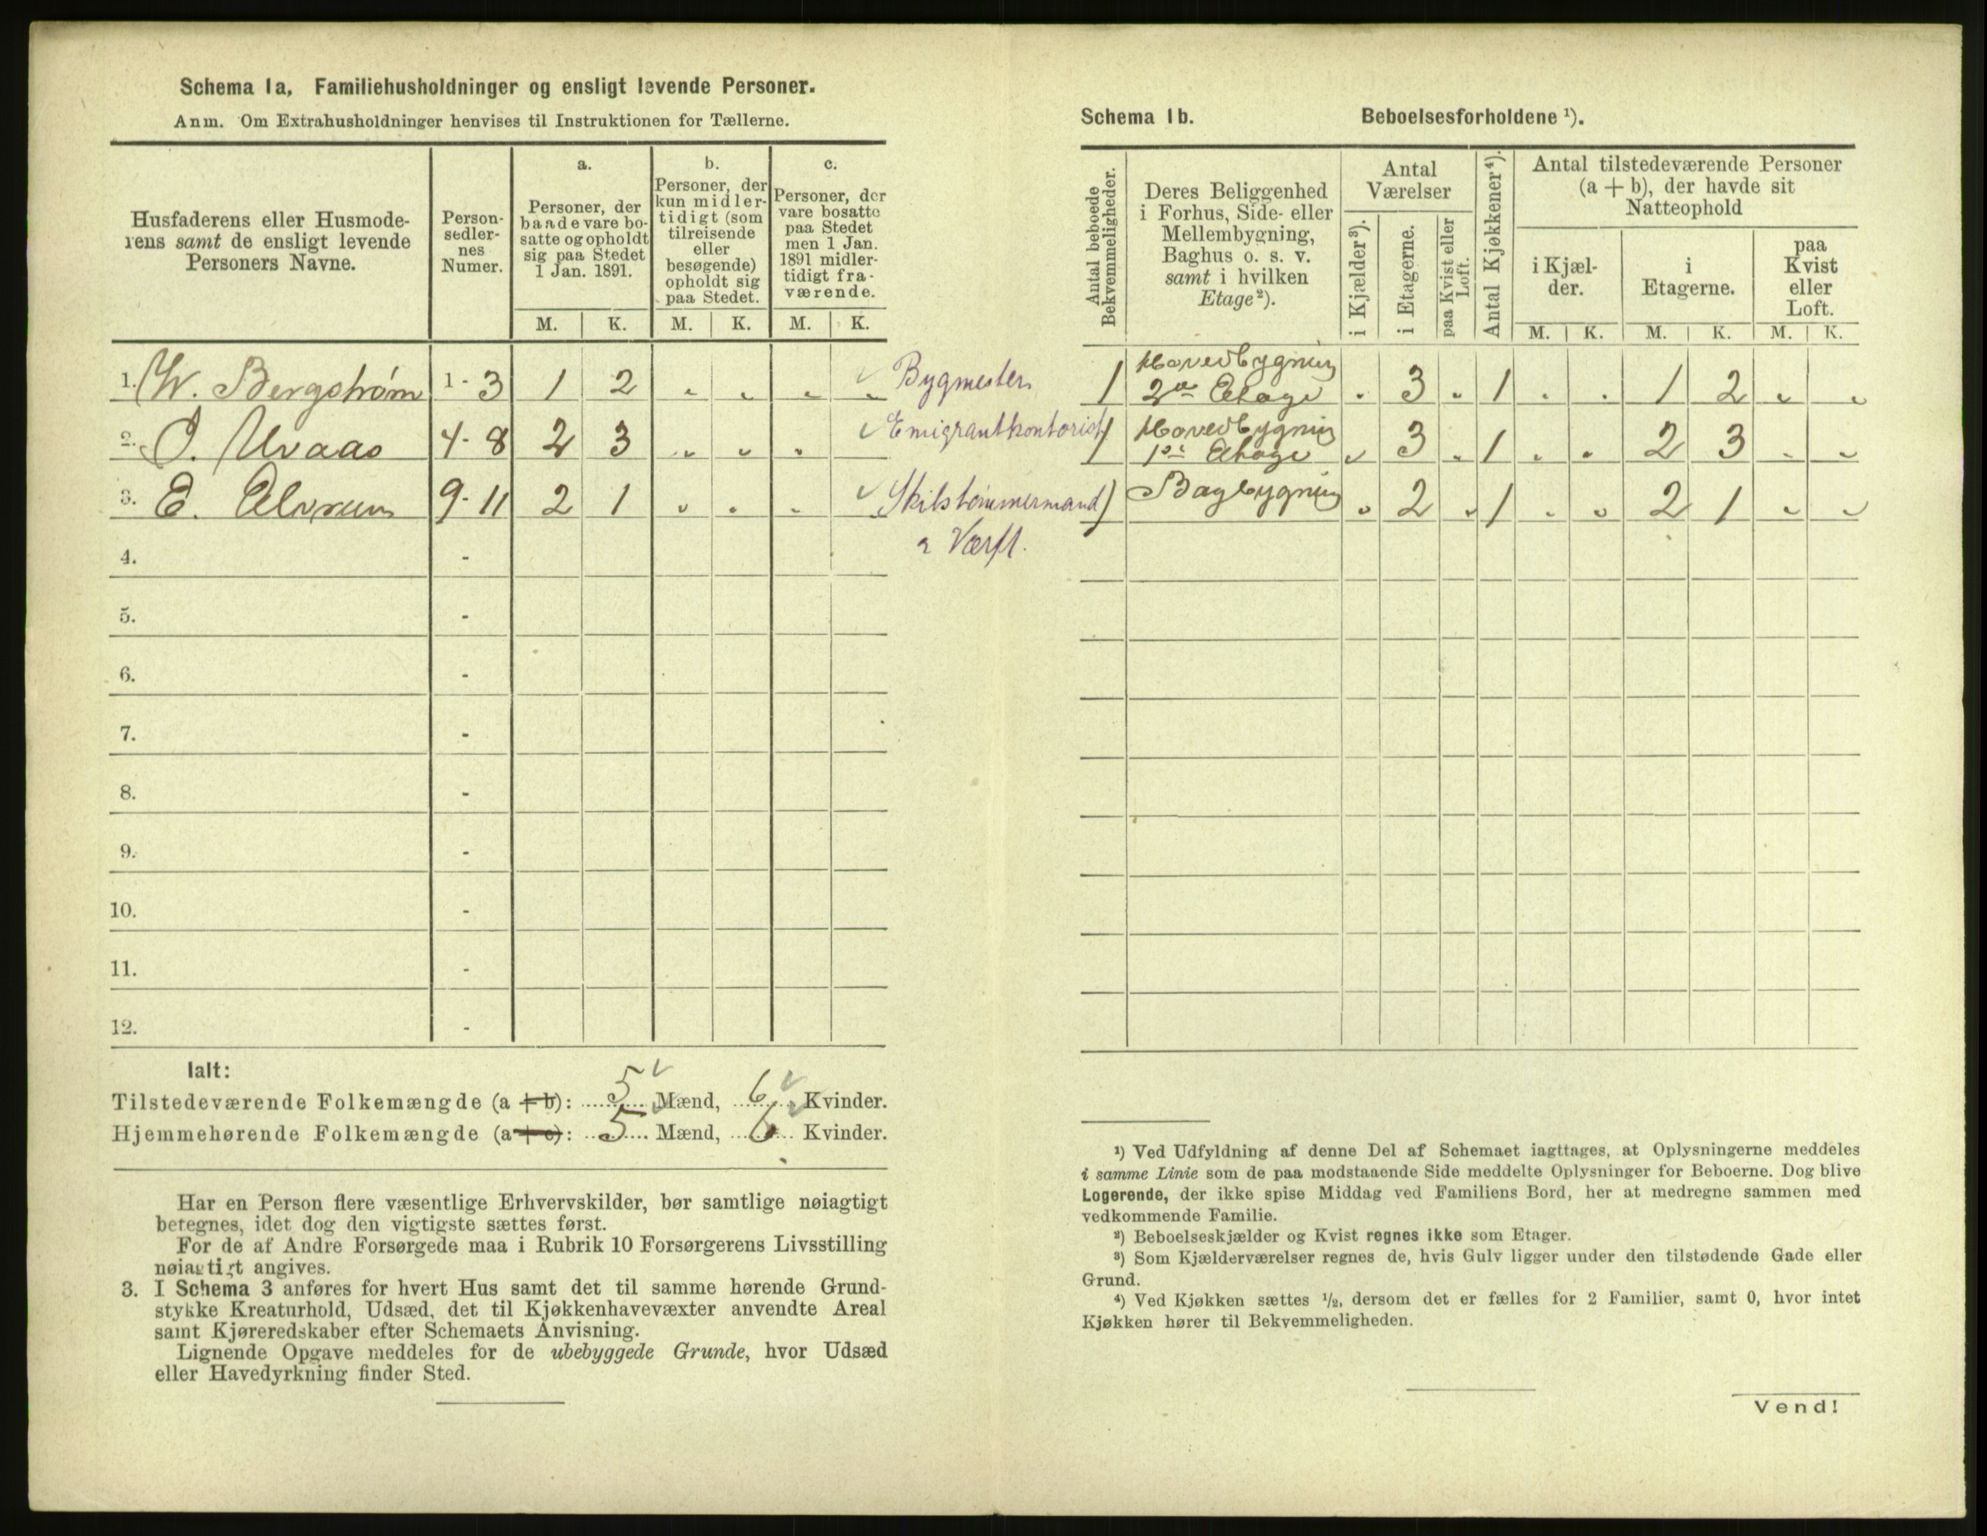 Schema 1a. Familiehusholdninger og ensligt levende Personer.
Anm. Om Extrahusholdninger henvises til Instruktionen for Tællerne.
Husfaderens eller Husmode-
rens samt de ensligt levende
Personers Navne.
Person-
sedler-
nes
Numer.
a.
Personer, der
baade vare bo-
satte og opholdt
sig paa Stedet
1 Jan. 1891.
b.
Personer, der
kun midler-
tidigt (som
tilreisende
eller
besøgende)
opholdt sig
paa Stedet.
c.
Personer, der
vare bosatte
paa Stedet
men 1 Jan.
1891 midler-
tidigt fra-
værende.
M. K. M. K. M. K.
1. W. Bergstrøm 1-3 1 2 " " " " Bygmester
2. O. Uvaas 4-8 2 3 " " " Emigrantkontorist
3. E. 9-11 2 1 " " " Skibstømmermand
a Værft.
4. -
5. -
6. -
7. -
8. -
9. -
10. -
11. -
12. -
Ialt:
Tilstedeværende Folkemængde (a + b): 5 Mænd, 6 Kvinder.
Hjemmehørende Folkemængde (a + c): 5 Mænd, 6 Kvinder.
Har en Person flere væsentlige Erhvervskilder, bør samtlige nøiagtigt
betegnes, idet dog den vigtigste sættes først.
For de af Andre Forsørgede maa i Rubrik 10 Forsørgerens Livsstilling
nøiagtigt angives.
3. I Schema 3 anføres for hvert Hus samt det til samme hørende Grund-
stykke Kreaturhold, Udsæd, det til Kjøkkenhavevæxter anvendte Areal
samt Kjøreredskaber efter Schemaets Anvisning.
Lignende Opgave meddeles for de ubebyggede Grunde, hvor Udsæd
eller Havedyrkning finder Sted.
Schema 1b. Beboelsesforholdene ¹).
Antal beboede
Bekvemmeligheder.
Deres Beliggenhed
i Forhus, Side- eller
Mellembygning,
Baghus o. s. v.
samt i hvilken
Etage²).
Antal
Værelser
i Kjælder³).
i Etagerne.
paa Kvist eller
Loft.
Antal Kjøkkener⁴).
Antal tilstedeværende Personer
(a + b), der havde sit
Natteophold
i Kjæl-
der.
i
Etagerne.
paa
Kvist
eller
Loft.
M. K. M. K. M. K.
1 Hovedbygning
2den Etage " 3 " 1 " " 1 2 " "
1 Hovedbygning
1ste Etage " 3 " 1 " " 2 3 " "
1 Bagbygning " 2 " 1 " " 2 1 " "
¹) Ved Udfyldning af denne Del af Schemaet iagttages, at Oplysningerne meddeles
i samme Linie som de paa modstaaende Side meddelte Oplysninger for Beboerne. Dog blive
Logerende, der ikke spise Middag ved Familiens Bord, her at medregne sammen med
vedkommende Familie.
²) Beboelseskjælder og Kvist regnes ikke som Etager.
³) Som Kjælderværelser regnes de, hvis Gulv ligger under den tilstødende Gade eller
Grund.
⁴) Ved Kjøkken sættes ½, dersom det er fælles for 2 Familier, samt 0, hvor intet
Kjøkken hører til Bekvemmeligheden.
Vend!